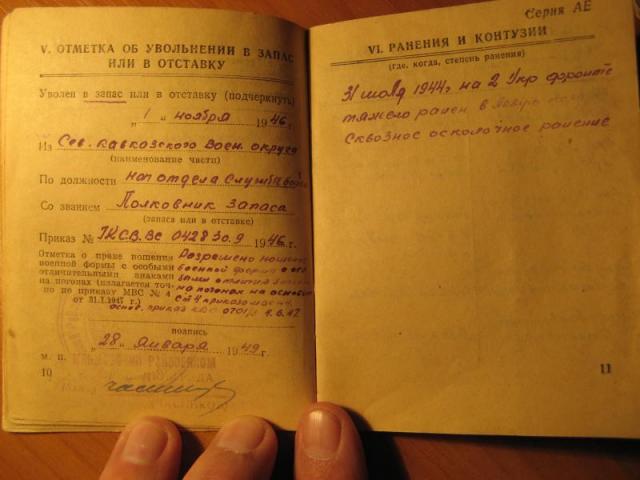 V. ОТМЕТКА ОБ УВОЛЬНЕНИИ В ЗАПАС
ИЛИ В ОТСТАВКУ
Уволен в запас или в отставку (подчеркнуть)
„1" ноября 1946 г.
Из Сев. Кавказского Воен. округа
(наименование части)
По должности нач отдела Службы
Со званием Полковник запаса
(запаса или в отставке)
Приказ № ГКСВ. ВС 0428 30.9 1946 г.
Отметка о праве ношения
военной формы с особыми
отличительными знаками
на погонах (излагается точ-
но по приказу МВС № 4
от 31.I.1947 г.)
Разрешено ношение
военной формы с
отличия
на погонах на основ
Ст 4 приказа
основ. приказ 4.6.47
подпись
„28" января 1949 г.
м. п.
10
Серия АЕ
VI. РАНЕНИЯ И КОНТУЗИИ
(где, когда, степень ранения)
31 1944г на 2 Укр фронте
тяжело ранен в
Сквозное осколочное ранение
11